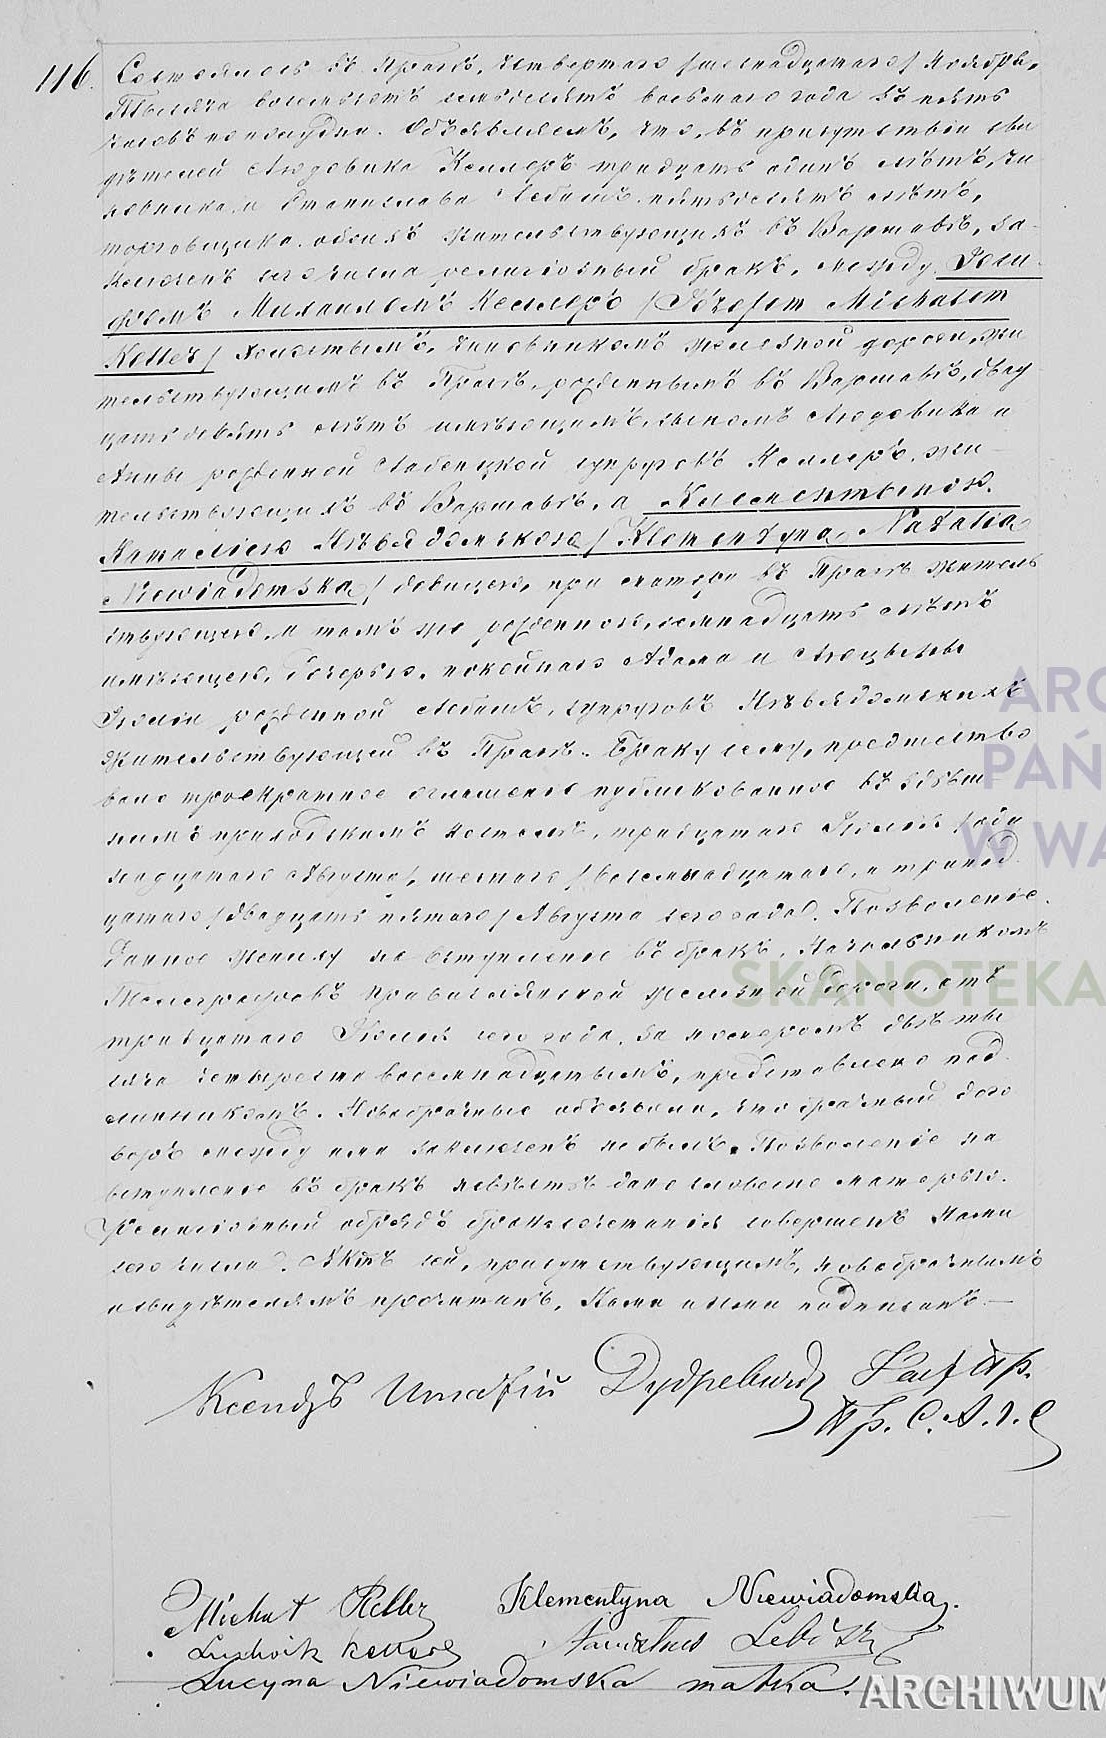 116. Состоялось въ Прагѣ, четвертаго /шестнадцатаго/ Ноября,
Тысяча восемьсотъ семьдесятъ восьмаго года въ пять
часовъ по полудни. Объявляемъ, что, въ присутствіи сви
дѣтелей Людовика Келлеръ тридцать одинъ лѣтъ, чи
новника и Станислава Лебишъ пятьдесятъ лѣтъ,
торговщика обоихъ жительствующихъ въ Варшавѣ, за-
ключенъ сего числа религіозный бракъ, между Іоси-
фомъ Михаиломъ Келлеръ /Józefem Michałem
Keller/ холостымъ, чиновникомъ железной дороги, жи
тельствующимъ въ Прагѣ, рожденнымъ въ Варшавѣ, двад
цать девять лѣтъ имѣющимъ, сыномъ Людовика и
Анны рожденной супруговъ Келлеръ, жи-
тельствующихъ въ Варшавѣ, а Клементыною
Наталіею Нѣвядомскою /Klementyna Natalia
Niewiadomska/ девицею, при матери въ Прагѣ житель
ствующею, и тамъ же рожденною, семнадцать лѣтъ
имѣющею, дочерью покойнаго Адама и Люцыны
Юліи рожденной Лебишъ, супруговъ Нѣвядомскихъ
жительствующей въ Прагѣ. Браку сему, предшество
вало троекратное оглашеніе публикованное въ здѣш
нимъ приходскомъ костелѣ, тридцатаго Іюля /оди
надцатаго Августа/, шестаго /восемнадцатаго/ и тринад
цатаго /двадцать пятаго/ Августа сего года. Позволеніе
данное жениху на вступленіе въ бракъ, Начальникомъ
Телеграфовъ Привислянской железной дороги, отъ
тридцатаго Іюля сего года, за номеромъ двѣ ты
сяча четыреста восемнадцатымъ, представлено под
линникомъ. Новобрачные объявили, что брачный дого
воръ между ими заключенъ не былъ. Позволеніе на
вступленіе въ бракъ невѣстѣ дано словесно матерью.
Религіозный обрядъ бракосочетанія совершенъ Нами
сего числа. Актъ сей, присутствующимъ, новобрачнымъ
и свидѣтелямъ прочитанъ, Нами и ими подписанъ.—
Ксендзъ
Michał Keller Klementyna Niewiadomska.
Ludwik Keller Stanisław
Lucyna Niewiadomska matka.
ARCHIWUM
SKANOTEKA